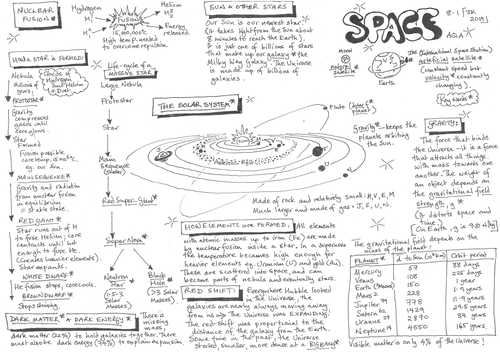 NUCLEAR
FUSION*
Hydrogen
FUSION
15,000,000°C
High temp needed to
overcome repulsion
Helium
Energy
released.
SUN & OTHER STARS
Our Sun is our nearest star*.
(It takes light from the Sun about
8 minutes to reach the Earth.)
It is just one of billions of stars
that make up our galaxy* the
Milky Way Galaxy. The Universe
is made up of billions of
galaxies.
SPACE
8.1
Jan
2019
AQA
MOON
natural*
satellite*
ISS (International Space Station)
artificial satellite*
(constant speed but
velocity* constantly
changing)
Earth
Key Words*
HOW A STAR IS FORMED:
Nebula
Billions of
years.
Clouds of
Hydrogen
& Dust
PROTOSTAR*
Gravity
compresses
gases until
core glows.
Star
Formed
Fusion possible
eg. our Sun.
MAIN SEQUENCE*
Gravity and radiation
from nuclear fusion
in equilibrium
= stable state.
RED GIANT*
Star runs out of
H to fuse Helium; core
contracts until hot
enough to fuse He.
(creates heavier elements).
Star expands.
WHITE DWARF*
He fusion stops, core cools.
BROWN DWARF*
Stops Shining
Life-cycle of a
MASSIVE STAR
Large Nebula
Protostar
Star
Main
Sequence
(stable)
Red Super-Giant*
Super Nova*
Neutron
Star
Black
Hole
THE SOLAR SYSTEM*
Pluto
Gravity* keeps the
planets orbiting
the Sun.
Made of rock and relatively small: M, V, E, M
Much larger and made of gas: J, S, U, N.
GRAVITY:
The force that binds
the Universe - it is a force
that attracts all things
with mass towards one
another. The weight of
an object depends on
the gravitational field
strength, g*
(It distorts space and
time.)
(On Earth, g is 9.8 N/kg)
The gravitational field depends on the
mass of the planet.
HOW ELEMENTS are FORMED: All elements
with atomic masses up to iron (Fe) are made
by nuclear fusion inside a star. In a Supernova
the temperature becomes high enough for
heavier elements eg. Uranium (U) and gold (Au).
These are scattered into space, and can
become parts of nebula and eventually stars.
RED SHIFT: Everywhere Hubble looked
in the Universe, the
galaxies are nearly always moving away
from us, ie. The Universe was EXPANDING!
The red-shift was proportional to the
distance of the galaxy from the Earth.
Some time in the past, the Universe
started, smaller, more dense at a BIG BANG*
DARK MATTER* & DARK ENERGY*
There is
missing
mass;
dark matter (22%) to hold galaxies together. There
must also be dark energy (74%) to explain expansion.
PLANET*
d to Sun (10⁶km)
Orbit period
Mercury 57 88 days
Venus 108 225 days
Earth 150 1 year
Mars 228 1.9 years
Jupiter 778 11.9 years
Saturn 1427 29.5 years
Uranus 2870 84 years
Neptune* 4550 165 years
Visible matter is only 4% of the Universe!